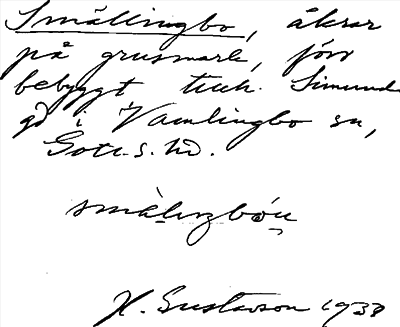 Smällingbo, åkrar
på grusmark, förr
bebyggt tuch. Simunde
gd i Vamlingbo sn,
Gotl. s. hd.
H. Gustavson 1938